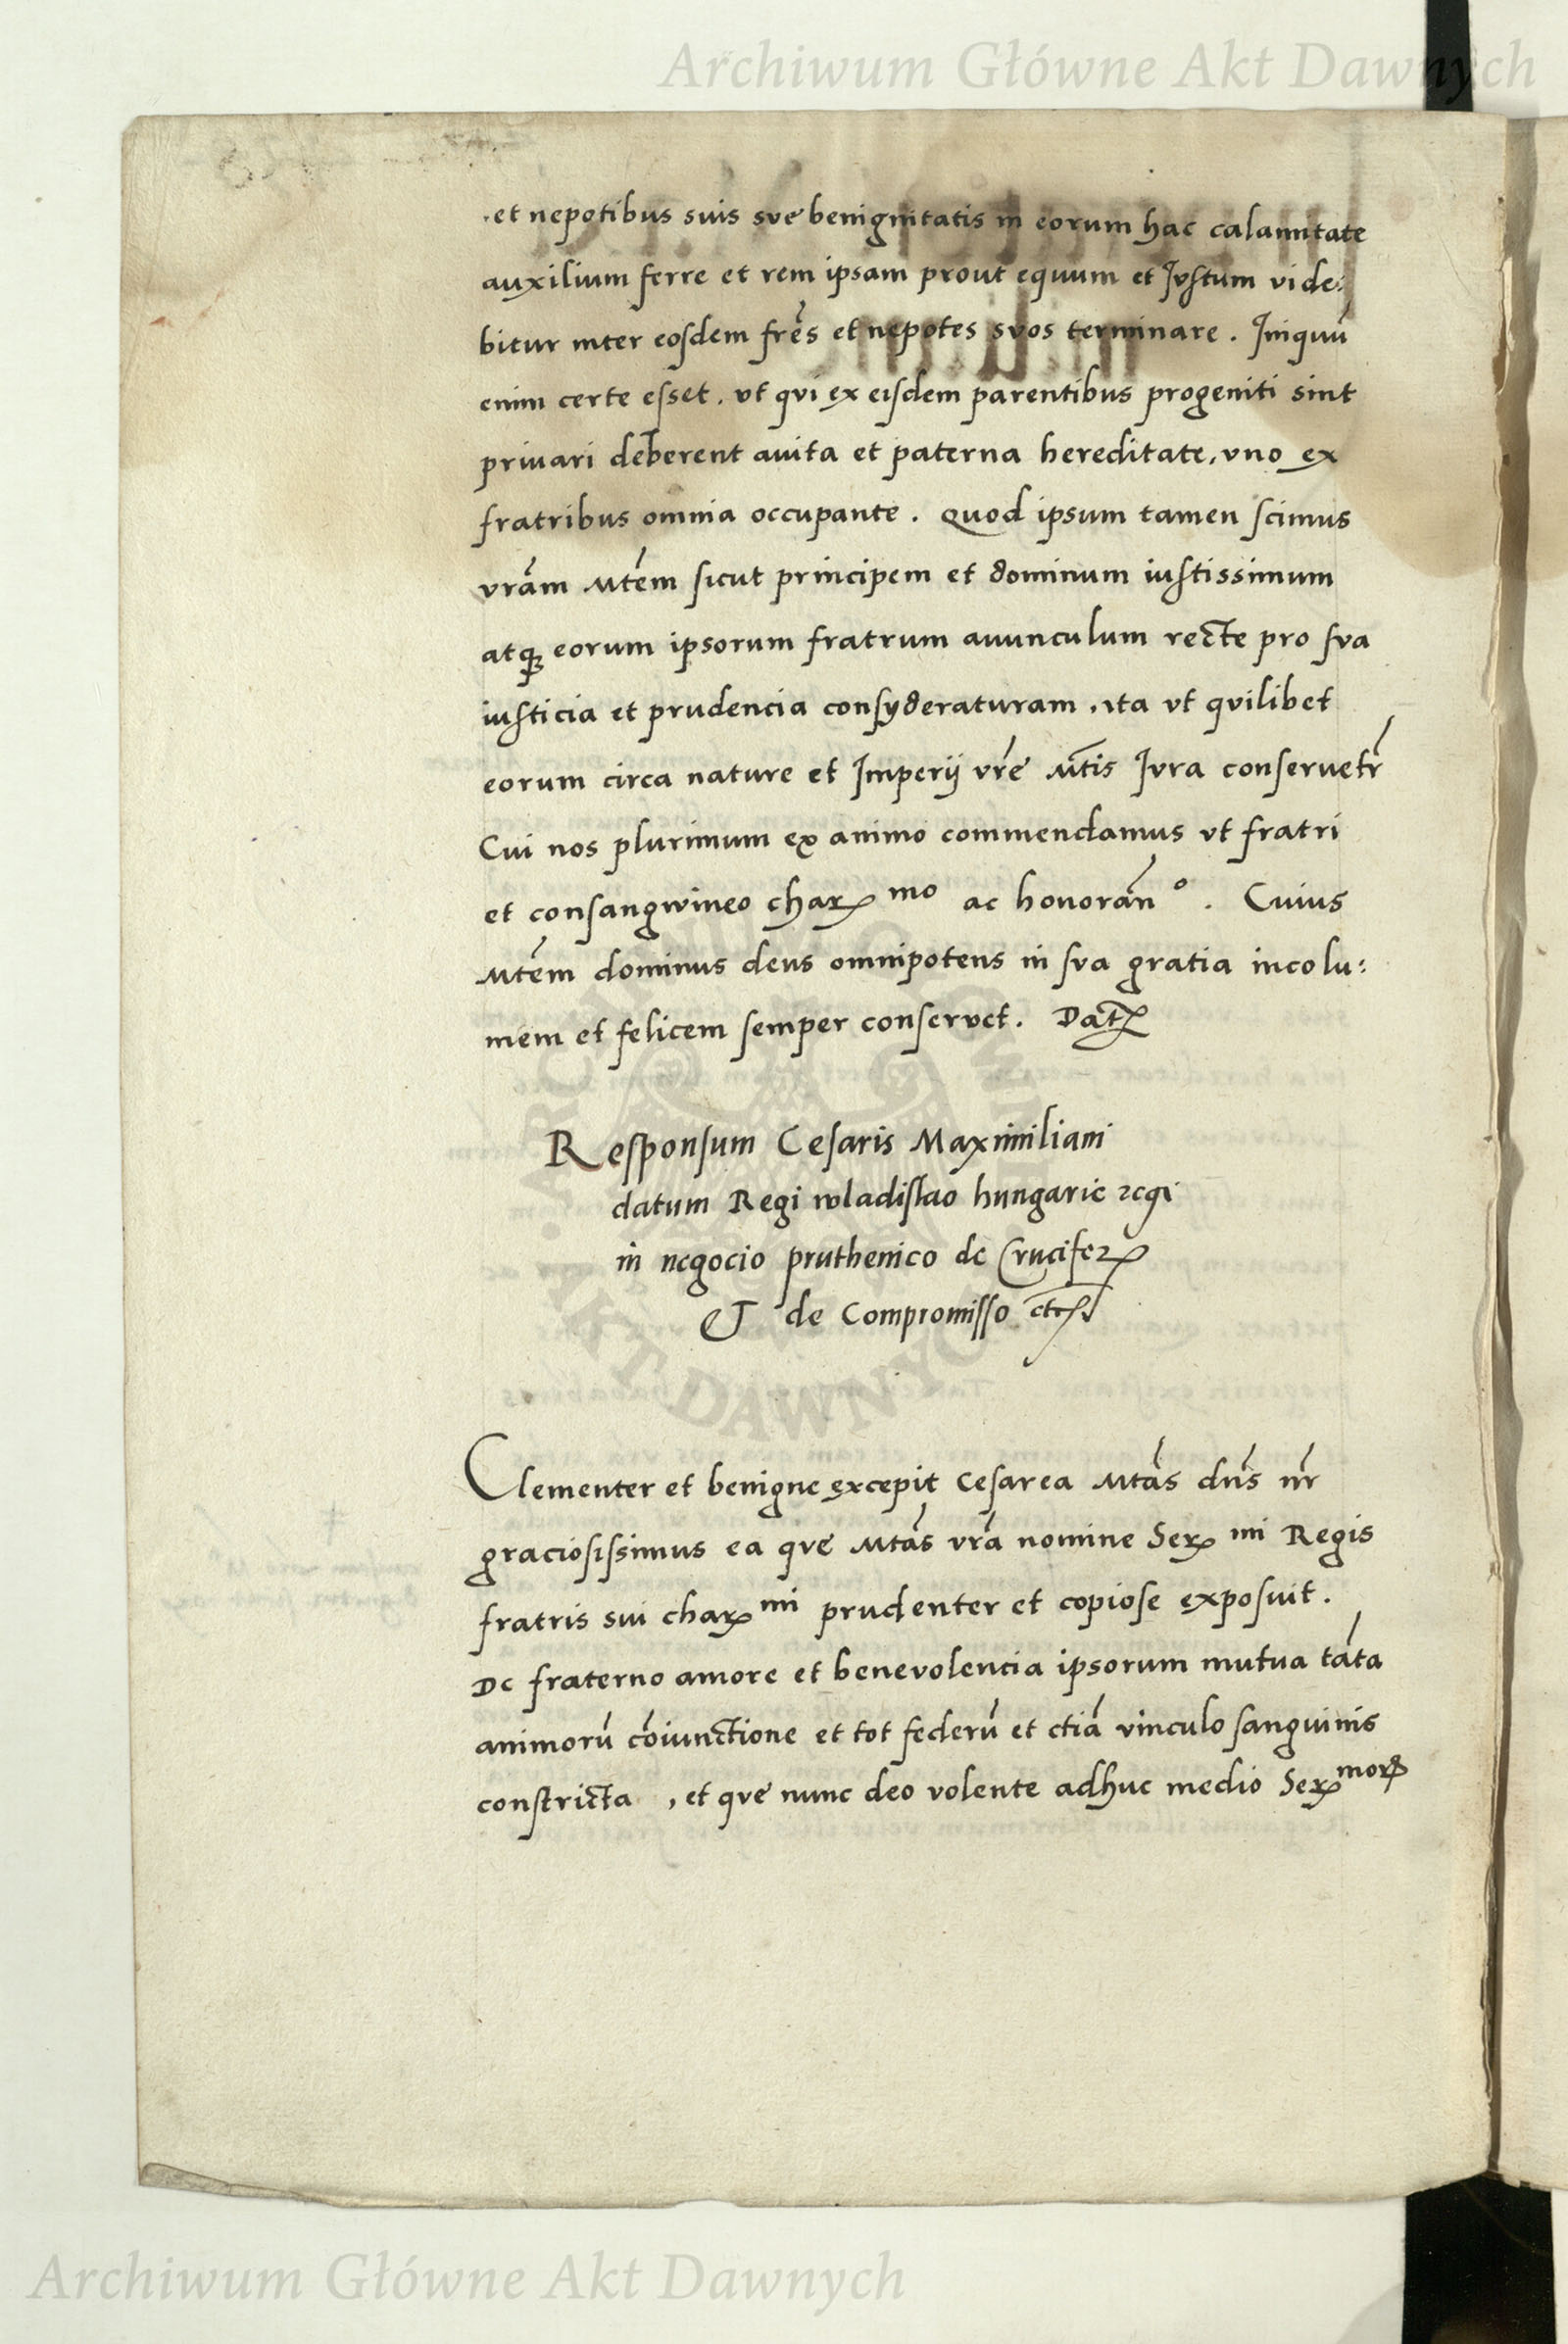 Archiwum Główne Akt Dawnych
.et nepotibus suis sue benignitatis in eorum hac calamitate
auxilium ferre et rem ipsam prout equum et Justum vide:
bitur inter eosdem fre̅s et nepotes suos terminare . Iniquu̅
enim certe esset . ut qui ex eisdem parentibus progeniti sint
priuari deberent auita et paterna hereditate, vno ex
fratribus omnia occupante . Quod ipsum tamen scimus
vra̅m Mte̅m sicut principem et dominum iustissimum
atqꝫ eorum ipsorum fratrum auunculum recte pro sua
iusticia et prudencia consyderaturam . ita vt quilibet
eorum circa nature et Imperij vr̅e Mt̅is Jura conseruet̅r
Cui nos plurimum ex animo commendamus vt fratri
et consangwineo charꝭ mo ac honora̅n o . Cuius
Mte̅m dominus deus omnipotens in sua gratia incolu:
mem et felicem semper conseruet . Datꝭ
ARCHIWUM GŁÓWNE AKT DAWNYCH
Responsum Cesaris Maximiliani
datum Regi wladislao hungarie regi
in negocio pruthenico de Cruciferꝭ
Et de Compromisso etc
Clementer et benigne excepit Cesarea Mta̅s dn̅s nr̅
graciosissimus ea que Mta̅s vra̅ nomine Serꝭ mi Regis
fratris sui charꝭ mi prudenter et copiose exposuit .
De fraterno amore et benevolencia ipsorum mutua ta̅ta
animoru̅ co̅iunctione et tot federu̅ et etia̅ vinculo sanguinis
constricta , et que nunc deo volente adhuc medio Serꝭ morꝝ
Archiwum Główne Akt Dawnych